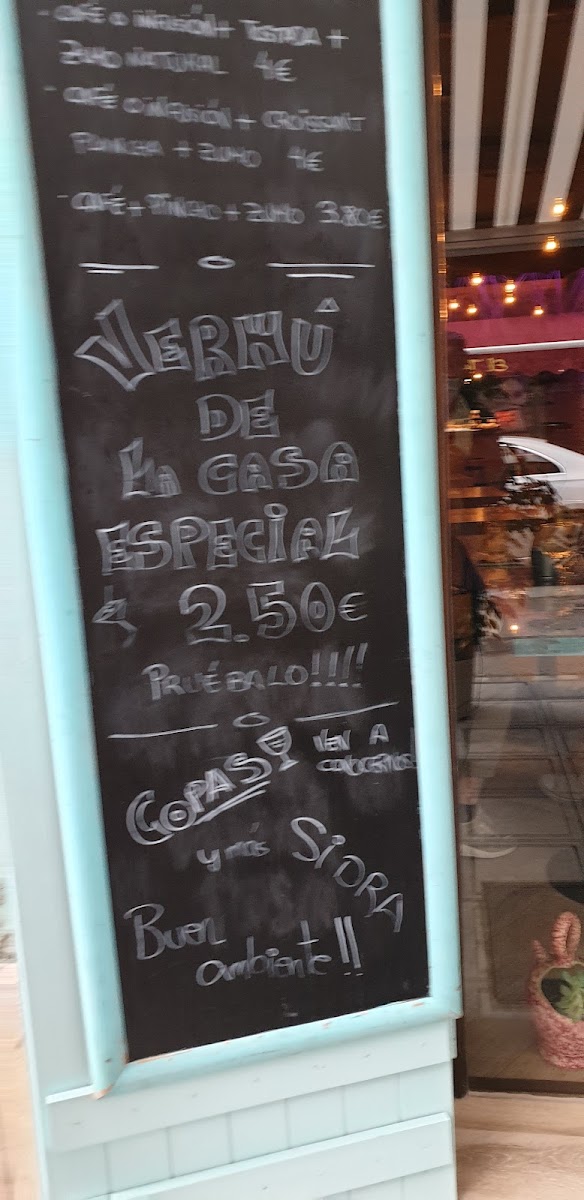 - CAFÉ O INFUSIÓN + TOSTADA +
ZUMO NATURAL 4€
- CAFÉ O INFUSIÓN + CROISSANT
PLANCHA + ZUMO 4€
- CAFÉ + PINCHO + ZUMO 3.80€
VERMÚ
DE
LA CASA
ESPECIAL
2.50€
PRUÉBALO!!!!
COPAS VEN A
y más SIDRA
Buen
ambiente!!